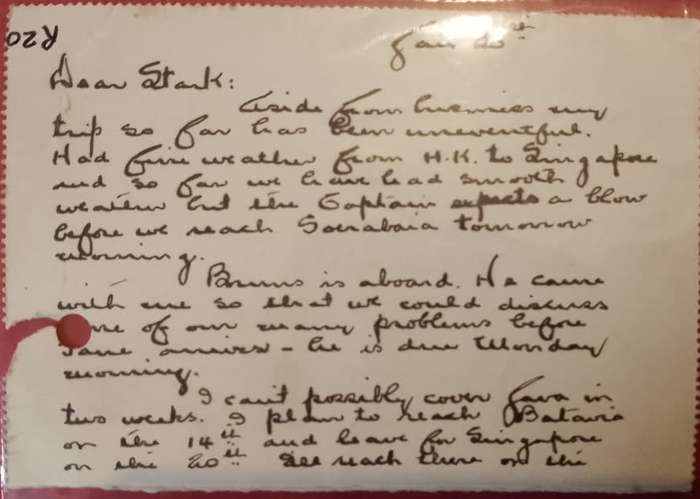 R20
Dear Stark:
Aside from business my
trip so far has been uneventful.
Had fine weather from H.K. to Singapore
and so far we have had smooth
weather but the Captain expects a blow
before we reach Soerabaia tomorrow
morning.
Bruns is aboard. He came
with me so that we could discuss
of our many problems before
arrives - he is due Monday
morning.
I can't possibly cover Java in
two weeks. I plan to reach Batavia
on the 14th and leave for Singapore
on the 20th I'll reach there on the